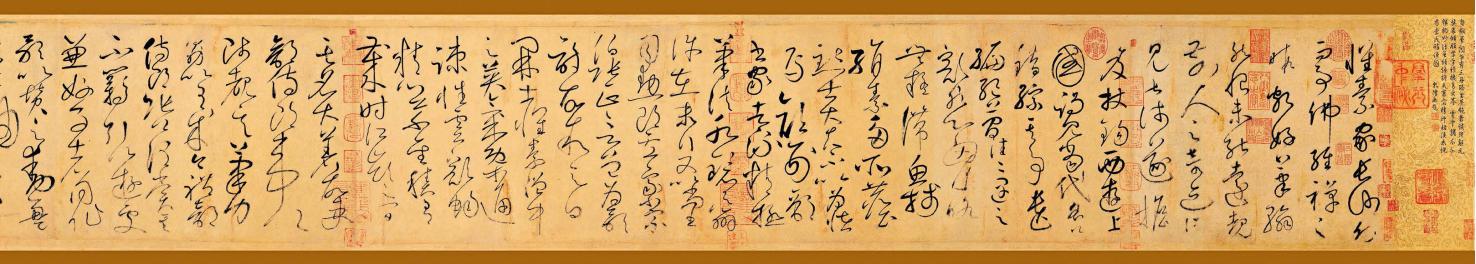 懷素家長沙幼
而事佛經禪之
暇頗好筆翰
然恨未能遠覩
前人之奇迹所
見甚淺遂擔
笈杖錫西遊上
國謁見當代名公
錯綜其事遺
編絕簡往往遇之
豁然心胸略
無疑滯魚牋
絹素多所塵
點士大夫不以為怪
焉顏刑部
書家者流精極
筆法水鏡之辨
許在末行又以尚書
司勳郎盧象小宗
伯張正言曾為歌
詩故敘之曰
開士懷素僧中
之英氣概通
疎性靈豁暢
精心草聖積有
歲時江嶺之間
其名大著故吏
部侍郎韋公
陟覩其筆力
勗以有成今禮部
侍郎張公謂賞其
不羈引以遊處
兼好事者同作
歌以贊之動盈